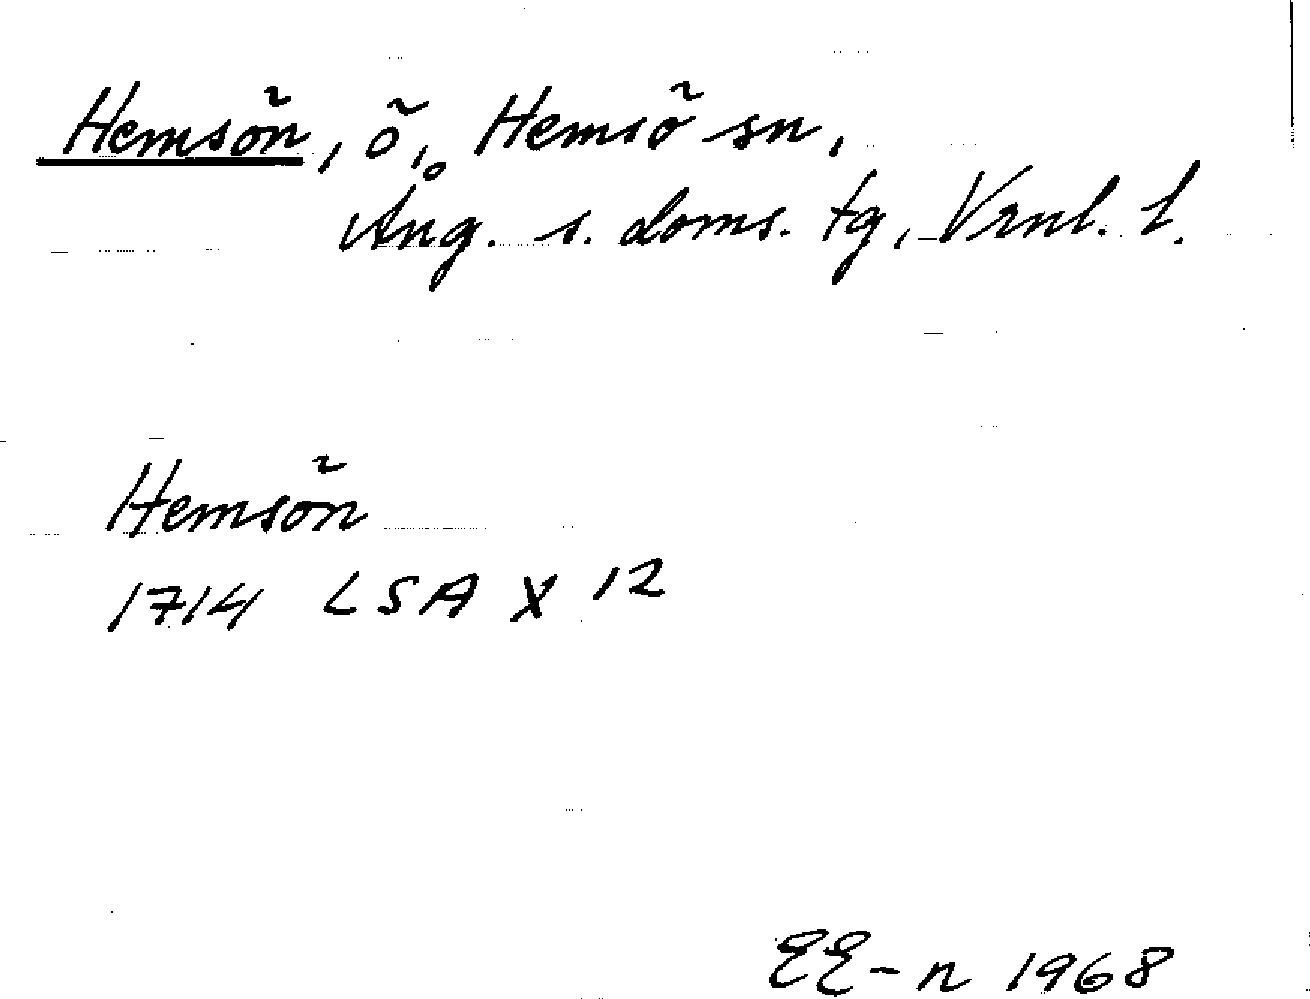 Hemsön, ö, Hemsö sn,
Ång. s. doms. tg, Vrnl. l.
Hemsön
1714 LSA X 12
EE-n 1968